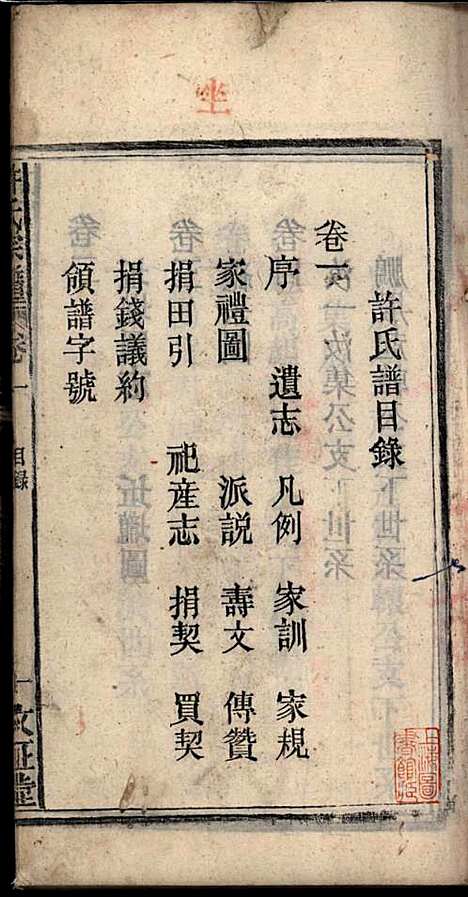 坐
許氏譜目錄
卷一
序 遺志 凡例 家訓 家規
家禮圖 派説 壽文 傳贊
捐田引 祀産志 捐契 買契
捐錢議約
領譜字號
許氏宗譜 卷一 目錄 一
上海圖書館藏